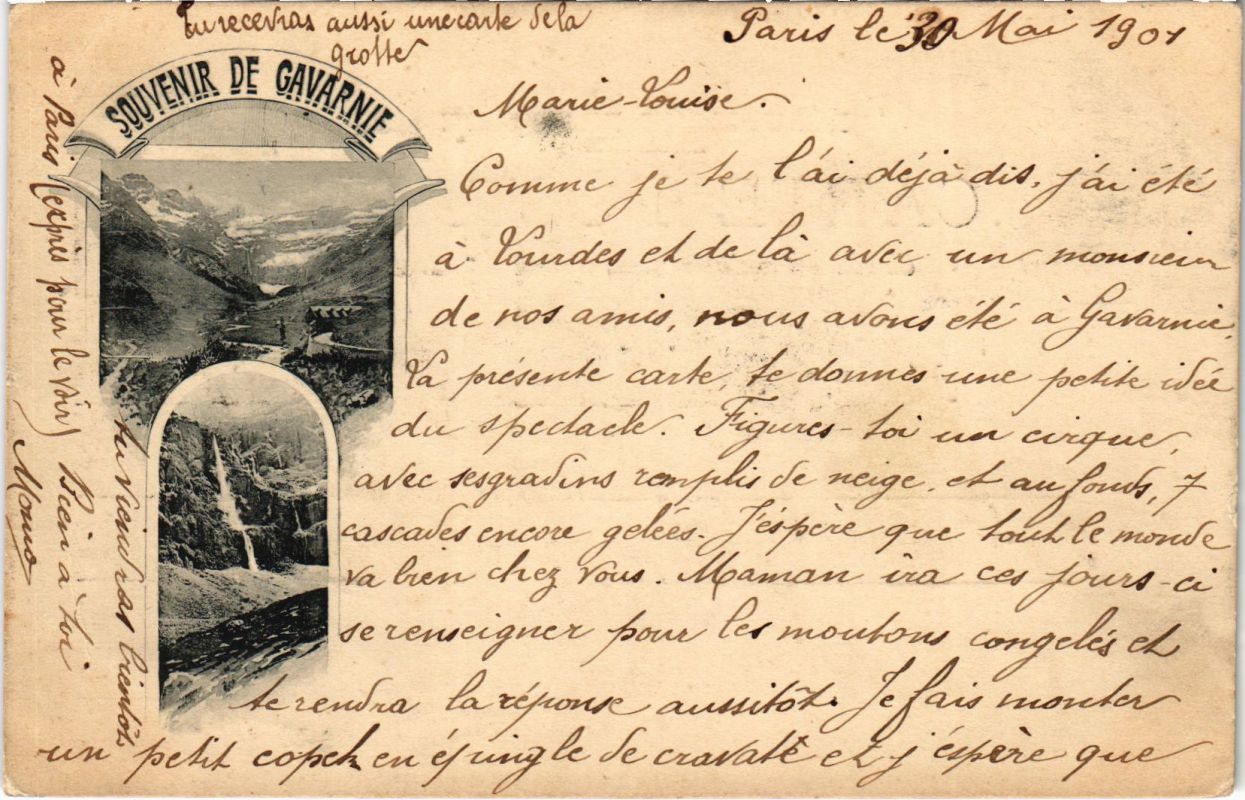 Tu recevras aussi une carte de la
grotte
Paris le 30 Mai 1901
SOUVENIR DE GAVARNIE
Marie-Louise.
Comme je te l'ai déjà dis, j'ai été
à Lourdes et de là avec un monsieur
de nos amis, nous avons été à Gavarnie.
La présente carte, te donnes une petite idée
du spectacle. Figures-toi un cirque,
avec ses gradins remplis de neige, et au fonds, 7
cascades encore gelées. J'éspère que tout le monde
va bien chez vous. Maman ira ces jours-ci
se renseigner pour les moutons congelés et
te rendra la réponse aussitôt. Je fais monter
un petit copek en épingle de cravate et j'éspère que
tu viendras bientôt
à Paris (exprès pour le voir)
Bien à toi
Momo